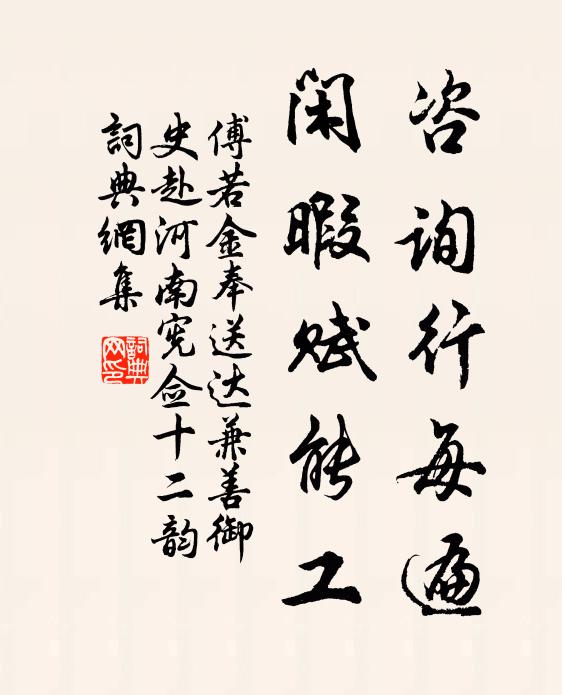 咨询行每遍
闲暇赋能工
傅若金奉送达兼善御
史赴河南宪佥十二韵
詞典網集
詞典
网印